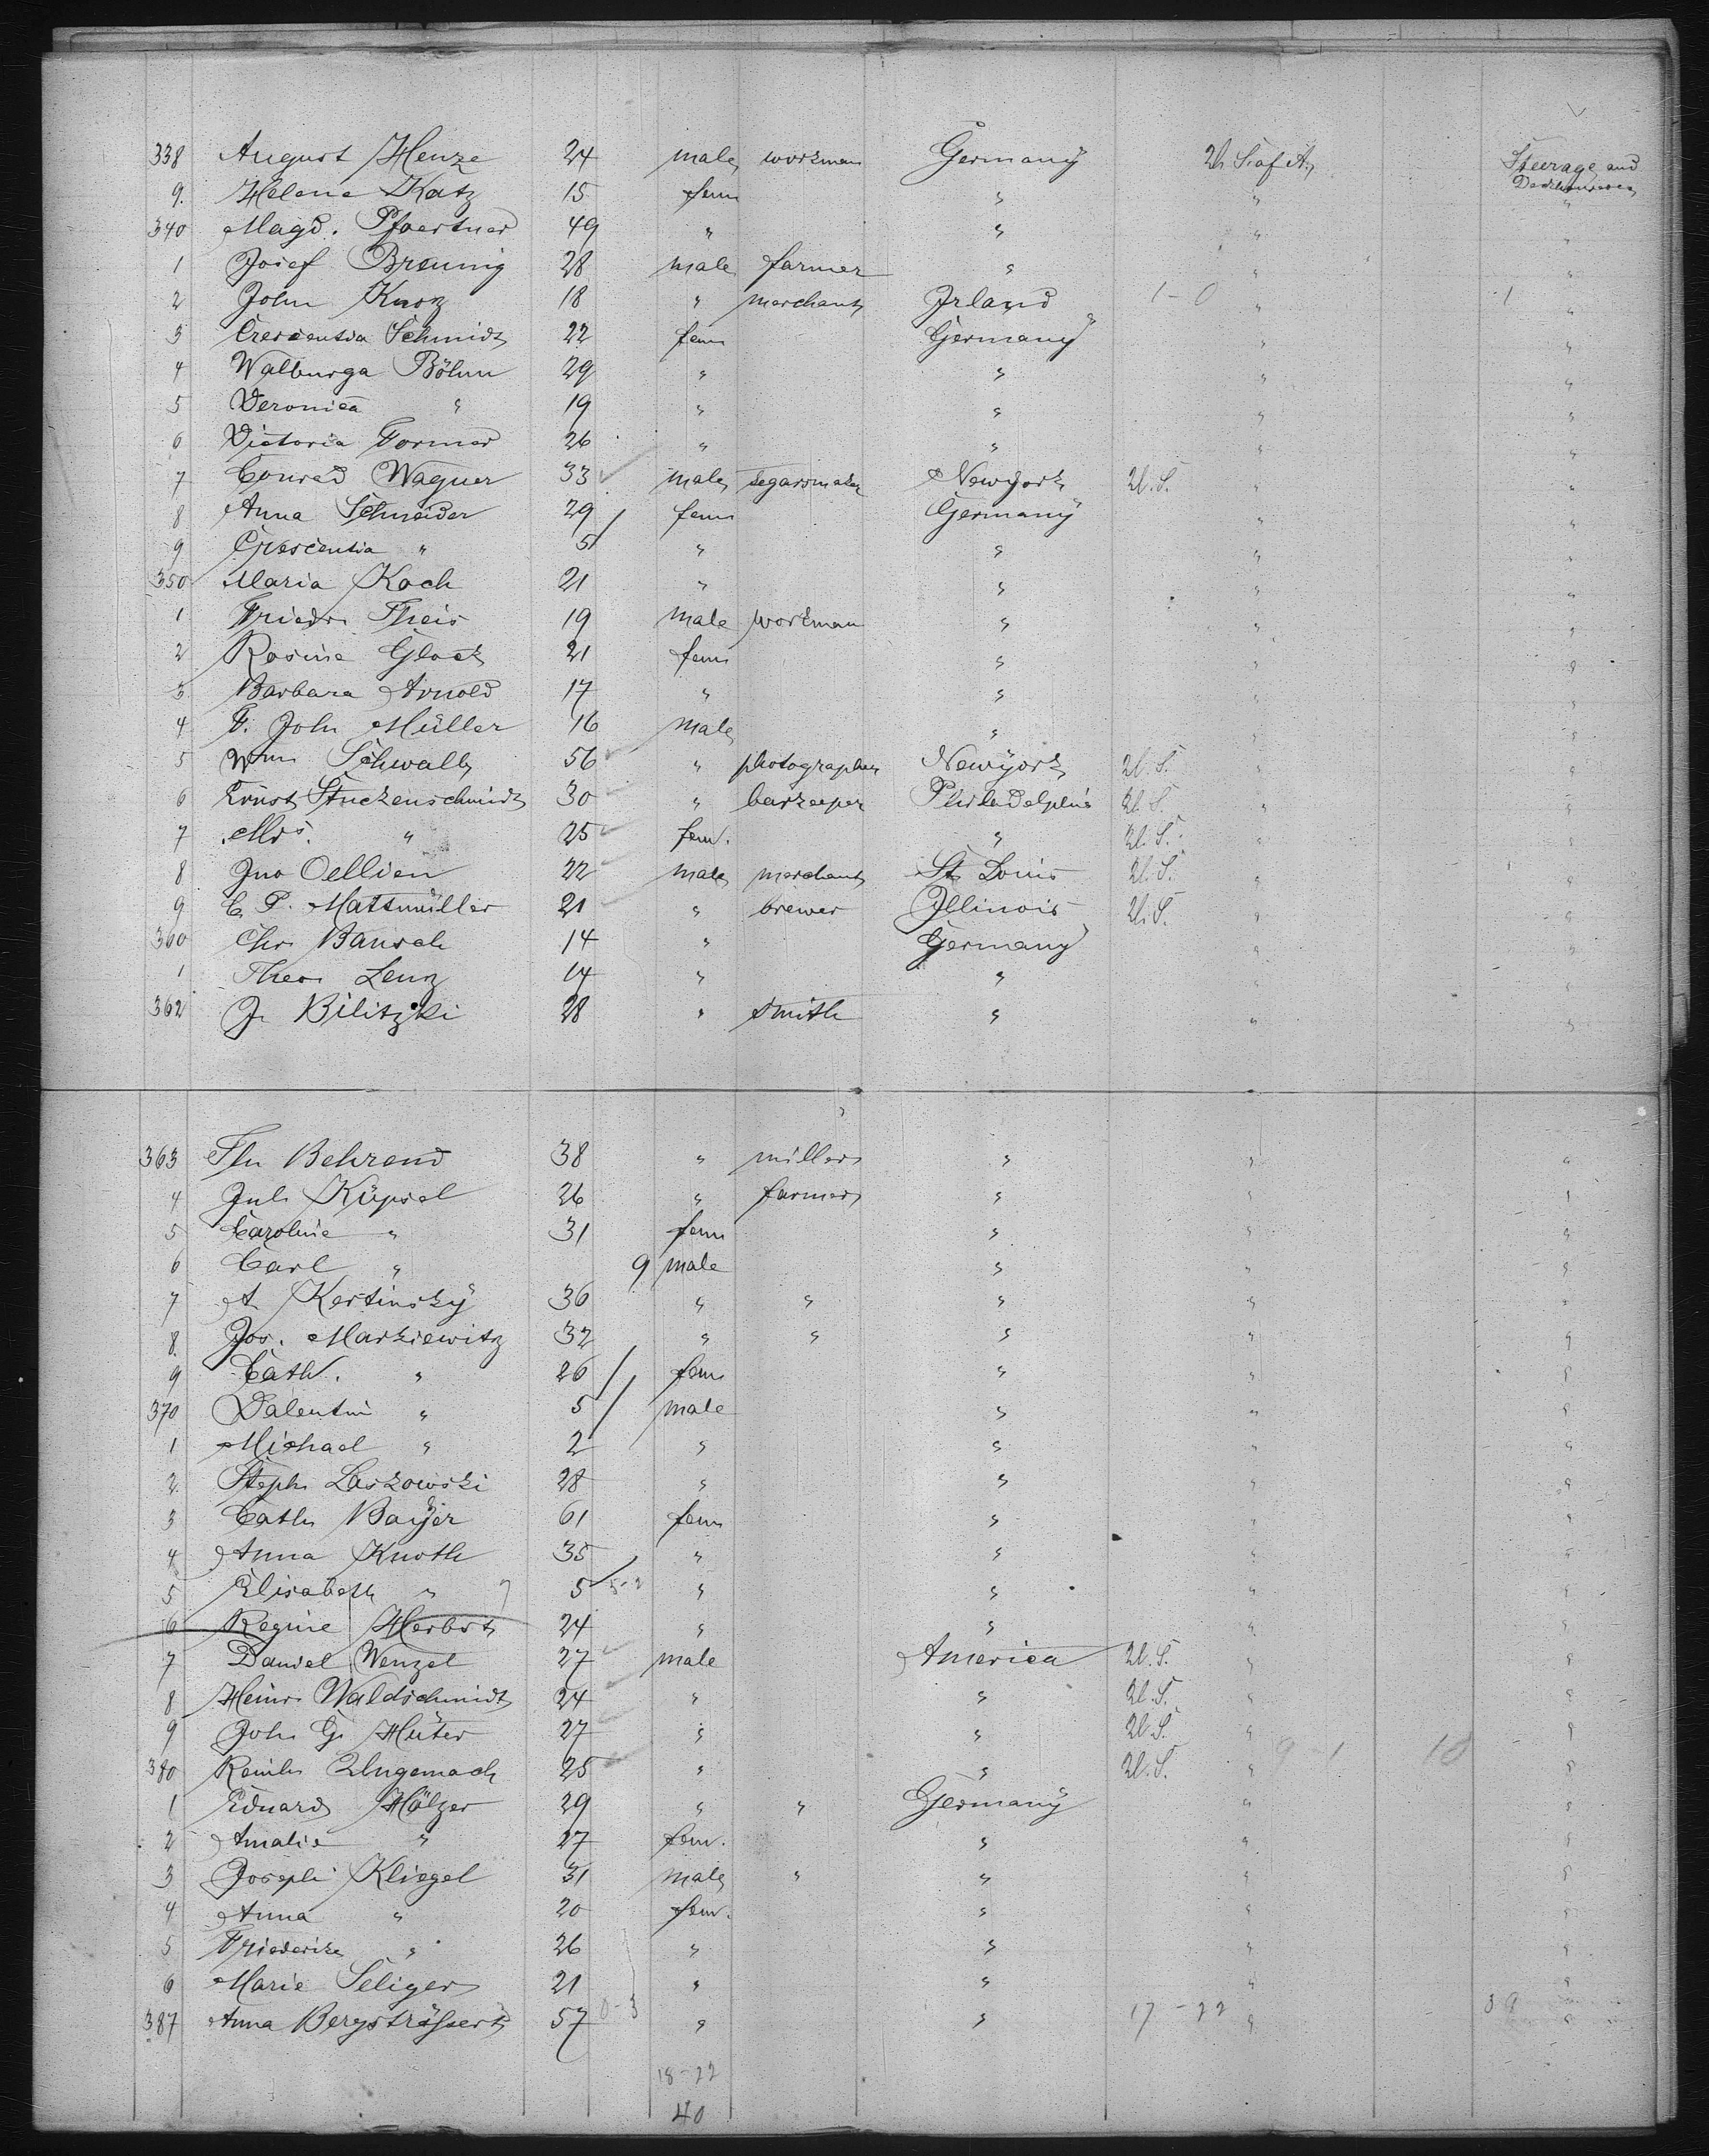 338 August Henze 24 male workman Germany U. S. of A. Steerage and
9. Helene Katz 15 fem " " "
340 Magd. Pfoertner 49 " " " "
1 Josef Breunig 28 male farmer " " "
2 John Kurz 18 " merchant Irland 1-0 " 1 "
3 Crescentia Schmidt 22 fem Germany " "
4 Walburga Böhm 29 " " " "
5 Veronica " 19 " " " "
6 Victoria Former 26 " " " "
7 Conrad Wagner 33 male segarsmaker Newyork U. S. " "
8 Anna Schneider 29 fem Germany " "
9 Crescentia " 5 " " " "
350 Maria Koch 21 " " " "
1 Friedr Theis 19 male workman " " "
2 Rosine Glock 21 fem " " "
3 Barbara Arnold 17 " " " "
4 F. John Müller 16 male " " "
5 Wm Schwalb 56 " photographer Newyork U. S. " "
6 Ernst Stuckenschmidt 30 " barkeeper Philadelphia U. S. " "
7 Mrs. " 25 fem. " U. S. " "
8 Jno Oellien 22 male merchant St Louis U. S. " "
9 C. P. Mattmüller 21 " brewer Illinois U. S. " "
360 Chr Bausch 14 " Germany " "
1 Theo Lenz 14 " " " "
362 J. Bilitzki 28 " smith " " "
363 Th Behrend 38 " miller " " "
4 Jul Küpsel 26 " farmer " " "
5 Caroline " 31 fem " " "
6 Carl " 9 male " " "
7 A Kertinsky 36 " " " " "
8. Jos. Markiewitz 32 " " " " "
9 Cath. " 26 fem " " "
370 Valentin " 5 male " " "
1 Michael " 2 " " " "
2 Steph Laskowski 28 " " " "
3 Cath Bayer 61 fem " " "
4 Anna Knoth 35 " " " "
5 Elisabeth " 5 5-2 " " " "
6 Regine Herbst 24 " " " "
7 Daniel Wenzel 27 male America U. S. " "
8 Heinr Waldschmidt 24 " " U. S. " "
9 John G. Hüter 27 " " U. S. " "
380 Reinh Ungemach 25 " " U. S. " 9-1 10 "
1 Eduard Hölzer 29 " " Germany " "
2 Amalie " 27 fem. " " "
3 Joseph Kliegel 31 male " " " "
4 Anna " 20 fem. " " "
5 Friederike " 26 " " " "
6 Marie Seliger 21 " " " "
387 Anna Bergsträsser 57 0-3 " " 17-22 " 39 "
18-22
40